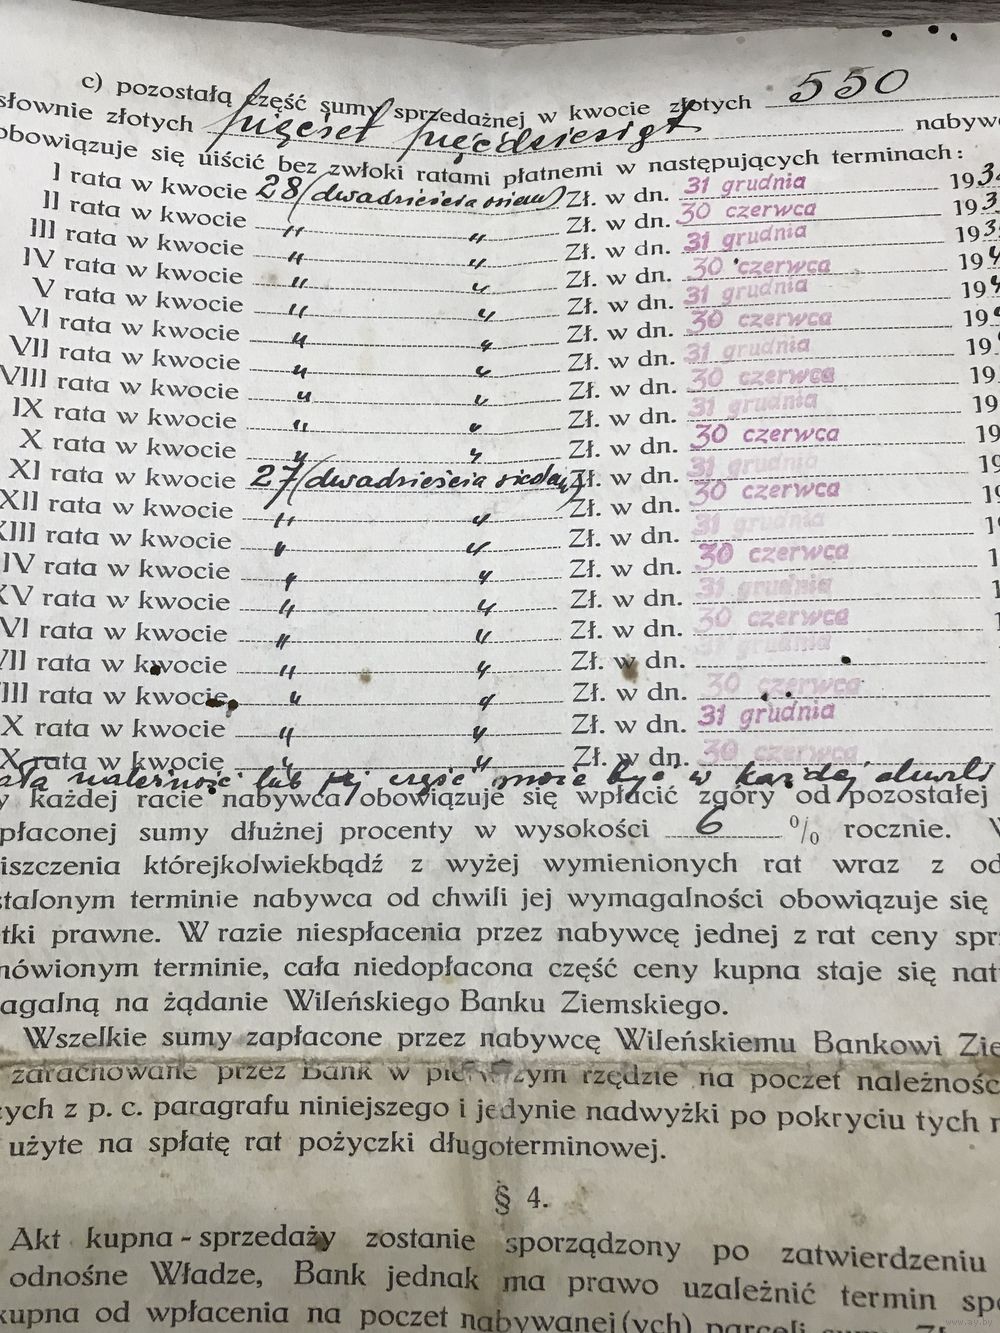 c) pozostałą część sumy sprzedażnej w kwocie złotych 550
słownie złotych pięćset pięćdziesiąt nabywc
obowiązuje się uiścić bez zwłoki ratami płatnemi w następujących terminach:
I rata w kwocie 28 (dwadzieścia osiem) Zł. w dn. 31 grudnia 193
II rata w kwocie " " Zł. w dn. 30 czerwca 193
III rata w kwocie " " Zł. w dn. 31 grudnia 193
IV rata w kwocie " " Zł. w dn. 30 czerwca 194
V rata w kwocie " " Zł. w dn. 31 grudnia 194
VI rata w kwocie " " Zł. w dn. 30 czerwca 19
VII rata w kwocie " " Zł. w dn. 31 grudnia 19
VIII rata w kwocie " " Zł. w dn. 30 czerwca 19
IX rata w kwocie " " Zł. w dn. 31 grudnia 19
X rata w kwocie " " Zł. w dn. 30 czerwca 19
XI rata w kwocie 27 (dwadzieścia siedem) Zł. w dn. 31 grudnia 19
XII rata w kwocie " " Zł. w dn. 30 czerwca 19
XIII rata w kwocie " " Zł. w dn. 31 grudnia 1
IV rata w kwocie " " Zł. w dn. 30 czerwca 1
XV rata w kwocie " " Zł. w dn. 31 grudnia 1
VI rata w kwocie " " Zł. w dn. 30 czerwca 1
VII rata w kwocie " " Zł. w dn. 31 grudnia
III rata w kwocie " " Zł. w dn. 30 czerwca
X rata w kwocie " " Zł. w dn. 31 grudnia
X rata w kwocie " " Zł. w dn. 30 czerwca
ała należność lub jej część może być w każdej chwili
y każdej racie nabywca obowiązuje się wpłacić zgóry od pozostałej
płaconej sumy dłużnej procenty w wysokości 6 % rocznie. W
iszczenia którejkolwiekbądź z wyżej wymienionych rat wraz z od
stalonym terminie nabywca od chwili jej wymagalności obowiązuje się
tki prawne. W razie niespłacenia przez nabywcę jednej z rat ceny spr
mówionym terminie, cała niedopłacona część ceny kupna staje się nat
agalną na żądanie Wileńskiego Banku Ziemskiego.
Wszelkie sumy zapłacone przez nabywcę Wileńskiemu Bankowi Zie
zarachowane przez Bank w pierwszym rzędzie na poczet należnośc
zych z p. c. paragrafu niniejszego i jedynie nadwyżki po pokryciu tych n
użyte na spłatę rat pożyczki długoterminowej.
§ 4.
Akt kupna-sprzedaży zostanie sporządzony po zatwierdzeniu
odnośne Władze, Bank jednak ma prawo uzależnić termin spo
kupna od wpłacenia na poczet nabywanej(ych) parceli sumy Zł.
www.ay.by